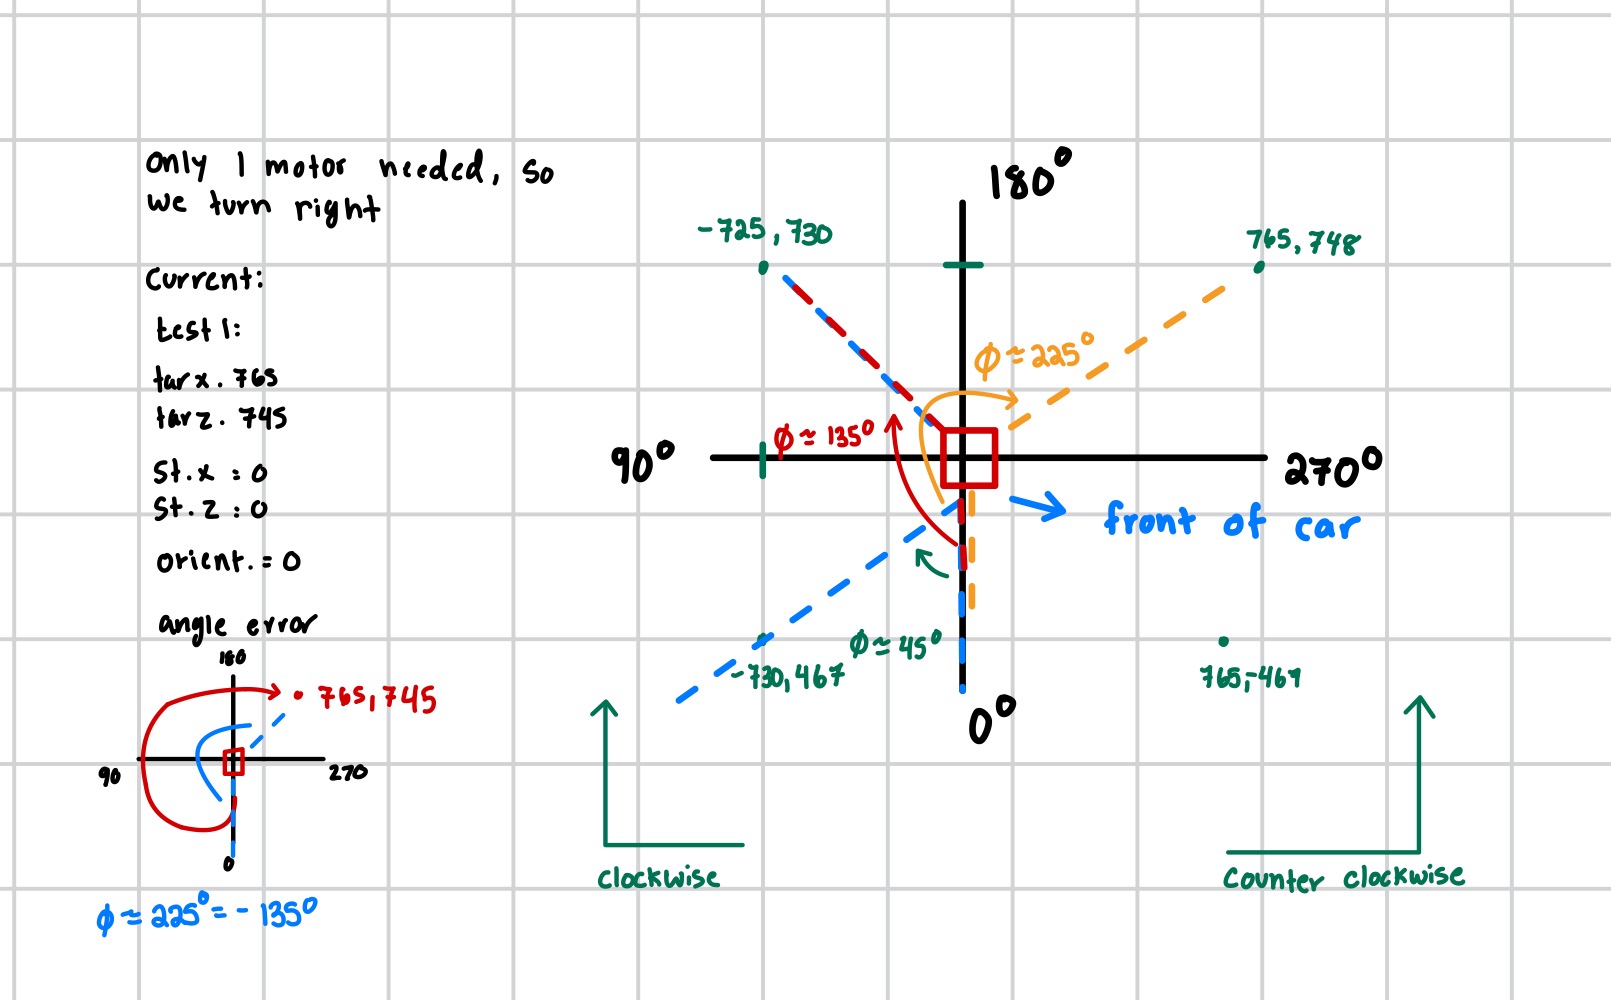 Only 1 motor needed, so
we turn right
Current:
test 1:
tar x. 765
tar z. 745
St.x : 0
St.z : 0
orient. = 0
angle error
180
765,745
90
270
0
φ ≈ 225° = -135°
180°
-725,730
765,748
φ ≈ 225°
φ ≈ 135°
90°
270°
front of car
φ ≈ 45°
-730,467
765,-467
0°
Clockwise
Counter clockwise